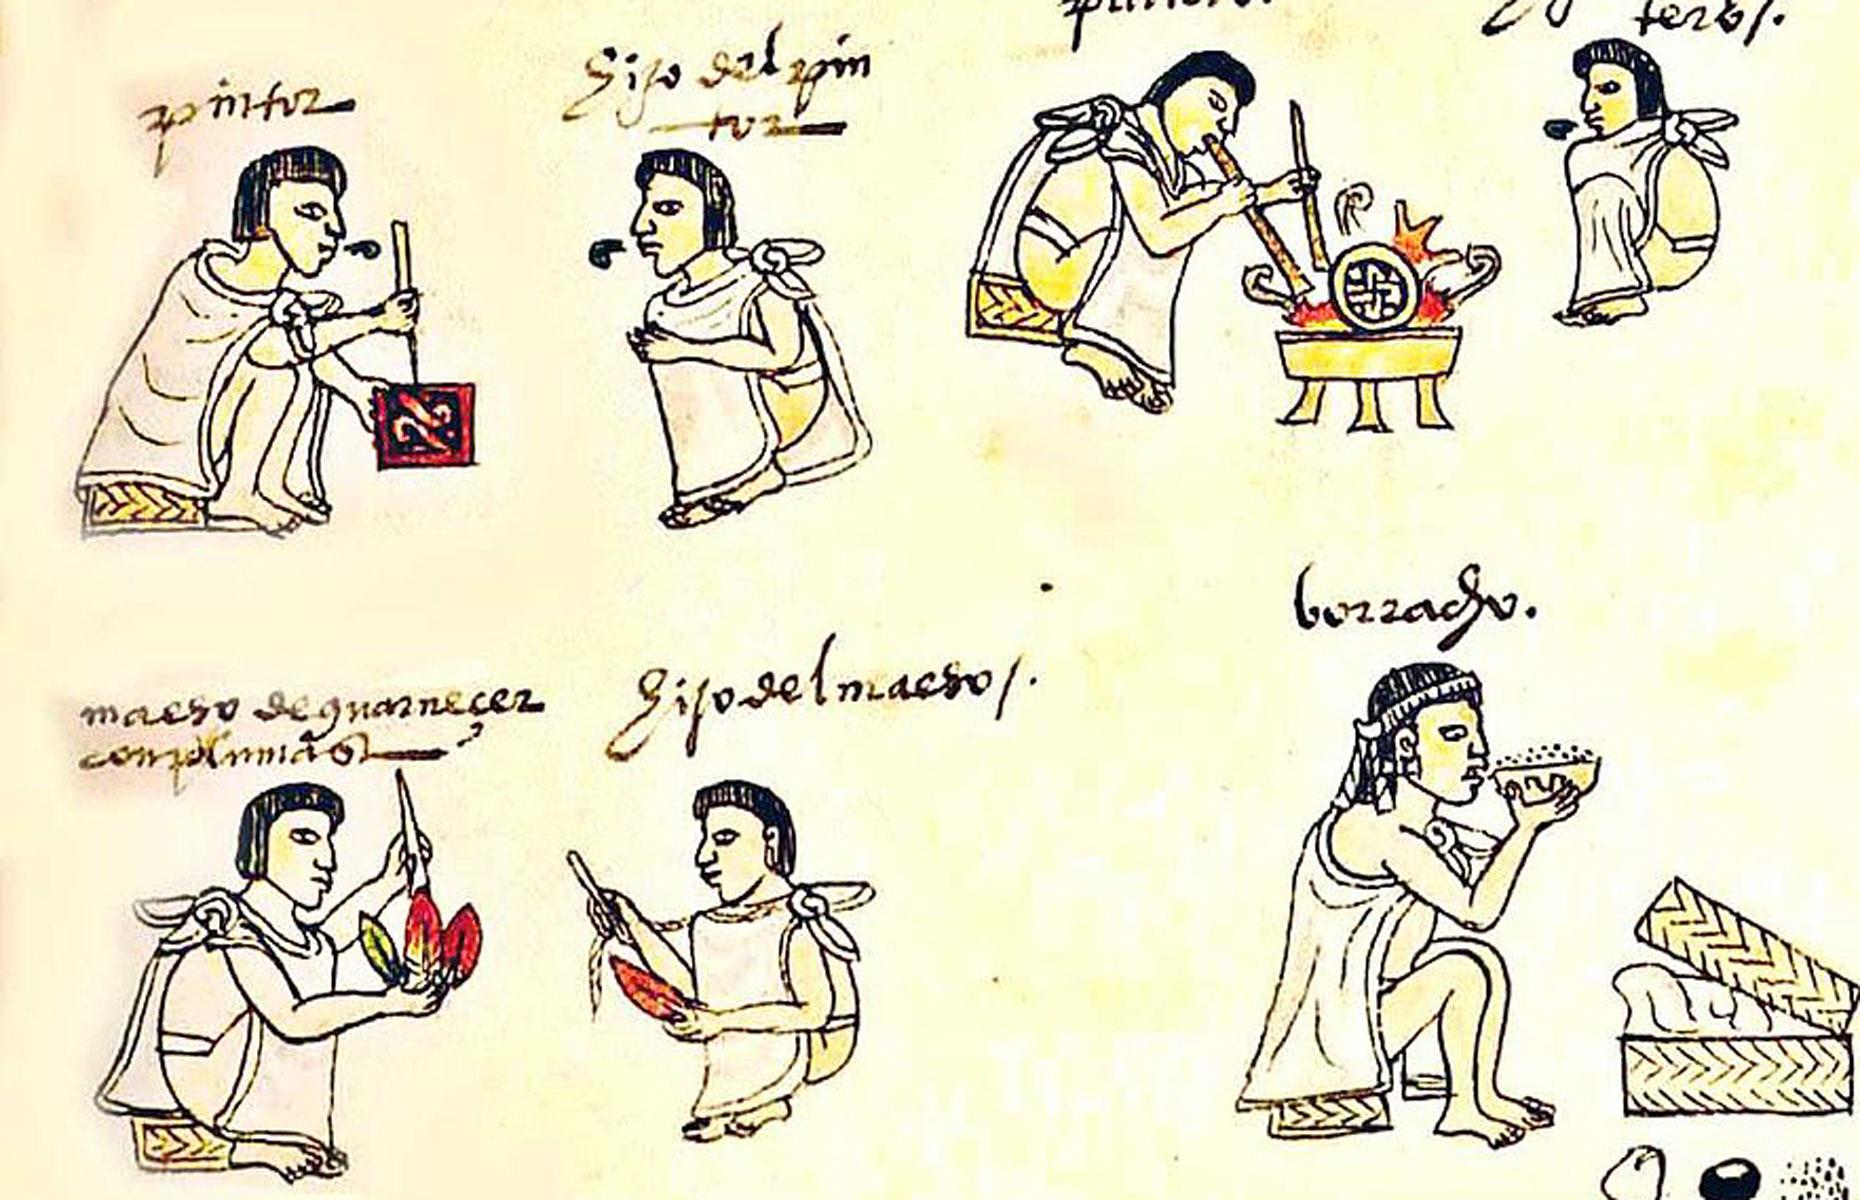 pintor
hijo del pin
tor
maeso de guarneçer
con plumas
hijo del maeso/.
borracho.